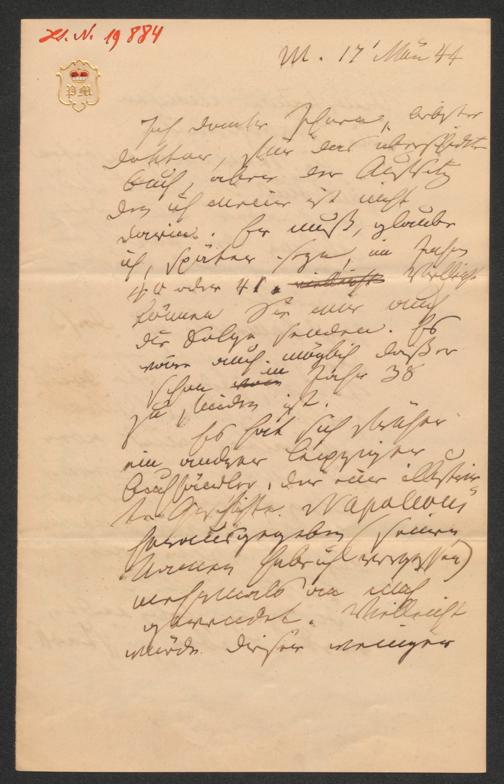 H. N. 19884
PM
M. 17' März 44
Ich danke Ihnen, bester
Doktor, für das überschickte
Buch, aber der Aufsatz
den ich meine ist nicht
darin. Er muß, glaube
ich, später seyn, im Jahre
40 oder 41. vielleicht Vielleicht
können Sie mir auch
die Folge senden. Es
wäre auch möglich daß er
schon im Jahre 38
zu finden ist.
Es hat sich früher
ein anderer Leipziger
Buchhändler, der eine illustrir-
te Geschichte Napoleons
herausgegeben (seinen
Namen hab ich vergessen)
mehrmals an mich
gewendet. Vielleicht
würde dieser weniger